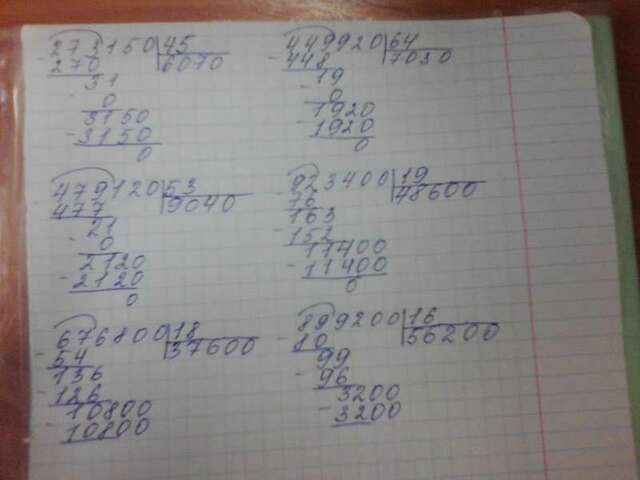 273150 45
- 270 6070
31
- 0
3150
- 3150
0
449920 64
- 448 7030
19
- 0
1920
- 1920
0
479120 53
- 477 9040
21
- 0
2120
- 2120
0
923400 19
- 76 48600
163
- 152
11400
- 11400
0
676800 18
- 54 37600
136
- 126
10800
- 10800
899200 16
- 80 56200
99
- 96
3200
- 3200